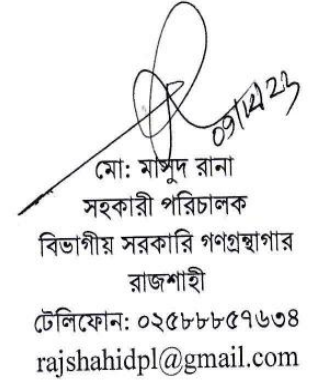 ০৭/১২/২৩
মো: মাসুদ রানা
সহকারী পরিচালক
বিভাগীয় সরকারি গণগ্রন্থাগার
রাজশাহী
টেলিফোন: ০২৫৮৮৮৫৭৬৩৪
rajshahidpl@gmail.com